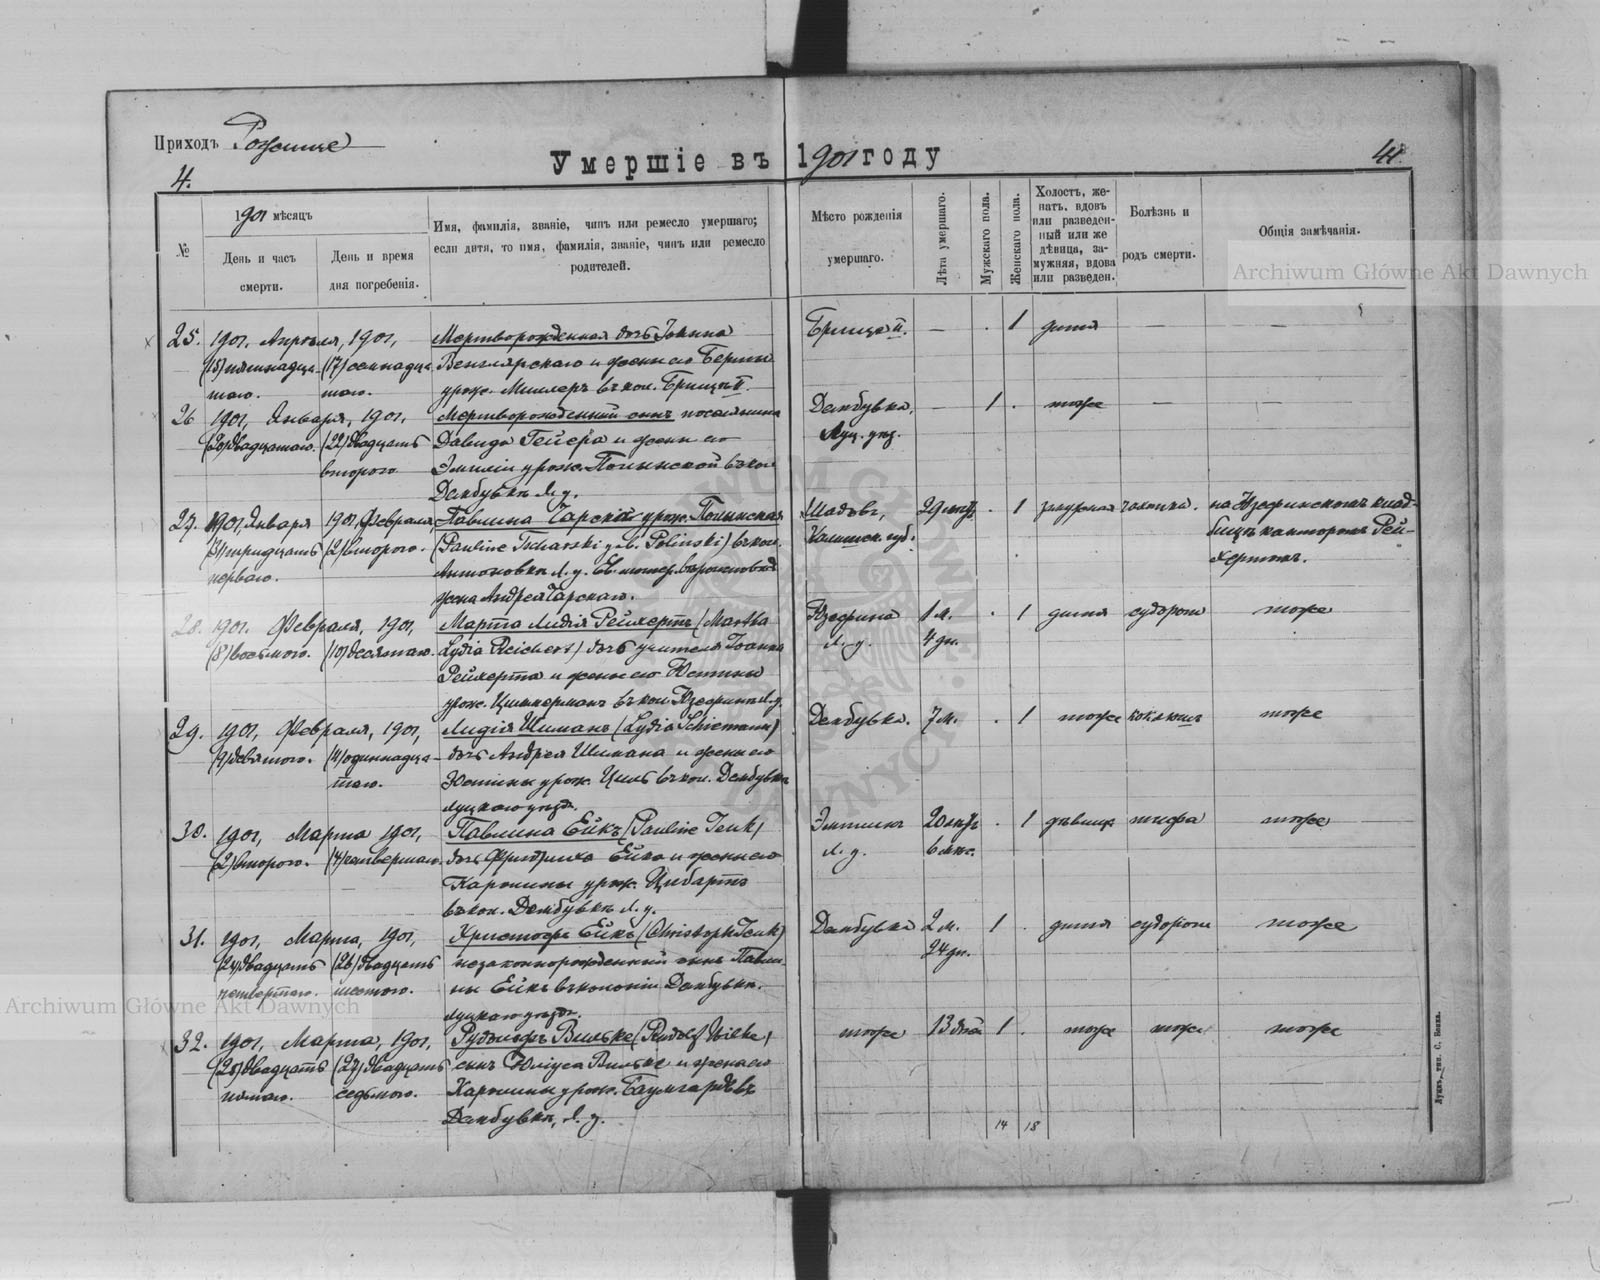 Приходъ Рожище
Умершіе въ 1901 году
4.
41
№
1901 мѣсяцъ
День и часъ смерти.
День и время дня погребенія.
Имя, фамилія, званіе, чинъ или ремесло умершаго;
если дитя, то имя, фамилія, званіе, чинъ или ремесло
родителей.
Мѣсто рожденія
умершаго.
Лѣта умершаго.
Мужскаго пола.
Женскаго пола.
Холостъ, же-
натъ, вдовъ
или разведен-
ный или же
дѣвица, за-
мужняя, вдова
или разведен.
Болѣзнь и
родъ смерти.
Общія замѣчанія.
Archiwum Główne Akt Dawnych
25. 1901, Апрѣля, 1901, Мертворожденная дочь Іоанна Брищи II. — . 1 дитя — —
(15) пятнадца- (17) семнадца- Венглярскаго и жены его Берты
таго. таго. урож. Миллеръ въ кол. Брищи II.
26 1901, Января, 1901, Мертворожденный сынъ поселянина Дембувка, — 1 . тоже — —
(20) двадцатаго. (22) двадцать Давида Гейера и жены его Луц. уѣз.
второго Эмиліи урож. Полынской въ кол.
Дембувкѣ Л. у.
27. 1901, Января 1901, Февраля, Павлина Чарской урож. Полынская Шадовъ, 29 лѣтъ . 1 замужняя чахотка. на Юзефинскомъ клад-
(31) тридцать (2) второго. (Pauline Tscharski geb. Polinski) въ кол. Калишск. губ. бищѣ канторомъ Рей-
перваго. Антоновкѣ Л. у. Ев. лютер. вѣроисповѣд. хертомъ.
жена Андрея Чарскаго.
28. 1901. Февраля, 1901, Марта Лидія Рейхертъ (Martha Юзефина 1 м. . 1 дитя судороги тоже
(8) восьмого. (10) десятаго. Lydia Reichert) дочь учителя Іоанна Л. у. 4 дн.
Рейхерта и жены его Юстины
урож. Циммерманъ въ кол. Юзефинѣ Л. у.
29. 1901, Февраля, 1901, Лидія Шиманъ (Lydia Schiemann) Дембувка. 7 м. . 1 тоже коклюшъ тоже
(9) девятого. (11) одиннадца- дочь Андрея Шимана и жены его
таго. Юстины урож. Циль въ кол. Дембувкѣ
луцкаго уѣзд.
30. 1901, Марта 1901, Павлина Ейкъ (Pauline Jeuk) 20 лѣтъ . 1 дѣвица тифа тоже
(2) второго. (4) четвертаго. дочь Фридриха Ейка и жены его Л. у. 6 мѣс.
Каролины урож. Цибартъ
въ кол. Дембувкѣ Л. у.
31. 1901, Марта, 1901, Христофъ Ейкъ (Christoph Jeuk) Дембувка 2 м. 1 . дитя судороги тоже
(24) двадцать (26) двадцать незаконнорожденный сынъ Павли- 24 дн.
четвертаго. шестого. ны Ейкъ въ колоніи Дембувкѣ.
луцкаго уѣзд.
32. 1901, Марта, 1901, Рудольфъ Вильке (Rudolf Wilke) тоже 13 дней 1 . тоже тоже тоже
(25) двадцать (27) двадцать сынъ Юліуса Вильке и жены его
пятаго. седьмого. Каролины урож. Баумгардъ въ
Дембувкѣ, Л. у.
14 18
Archiwum Główne Akt Dawnych